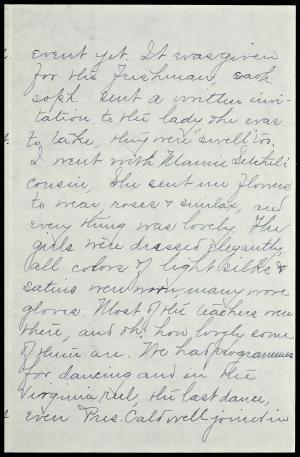 event yet. It was given
for the Freshman, each
soph. sent a written invi-
tation to the lady she was
to take, they were "swell" too.
I went with Mamie
cousin, she sent me flowers
to wear, roses & smilax, and
every thing was lovely. The
girls were dressed elegantly,
all colors of light silks &
satins were worn many wore
gloves. Most of the teachers were
there, and oh how lovely some
of them are. We had programmes
for dancing and in the
Virginia reel, the last dance,
even Pres. Caldwell joined in